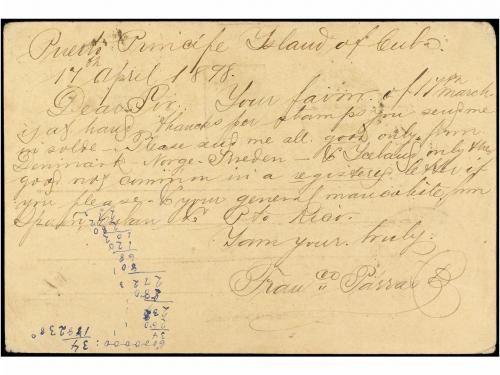 Puerto Principe Island of Cuba.
17th April 1898.
Dear Sir. Your favor of 17th March
is at hand, thancks per stamps you send me
in solde - Please send me all good only from
Denmark - Norge - Sweden - & Iceland only the
good not common in a registered letter if
you please - & your general mancoliste, in
Spain, Cuban & Pto Rico.
Yours truly.
Franco Parra